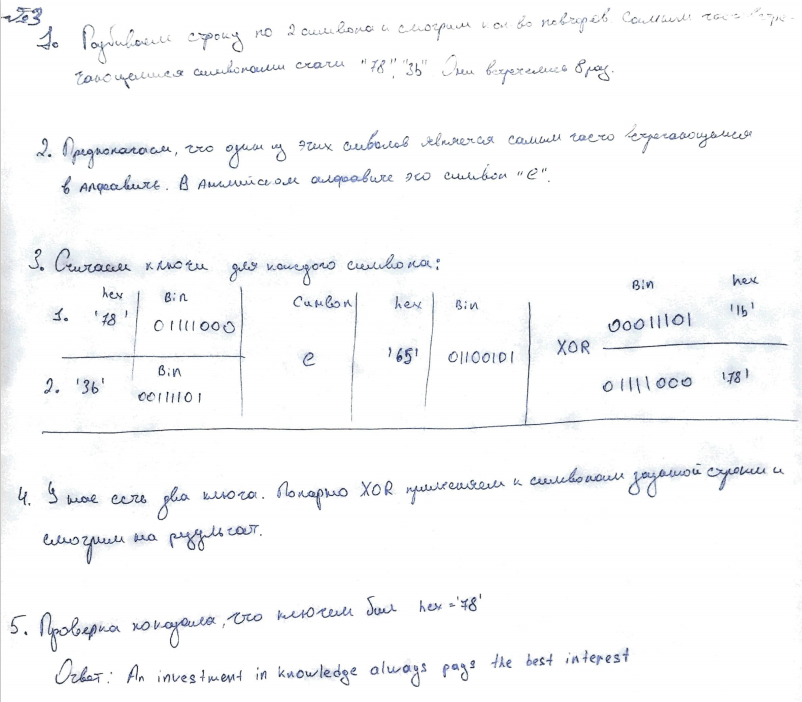 №3
1. Разбиваем строку по 2 символа и смотрим кол-во повторов. Самым часто встре-
чающимися символами стали "78", "3b" Они встретились 8 раз.
2. Предполагаем, что один из этих символов является самым часто встречающимся
в алфавите. В Английском алфавите это символ "е".
3. Считаем ключи для каждого символа:
hex Bin Символ hex Bin Bin hex
1. '78' 01111000 00011101 '1b'
e '65' 01100101 XOR
2. '3b' Bin 00111101 01111000 '78'
4. У нас есть два ключа. Попарно XOR применяем к символам заданной строки и
смотрим на результат.
5. Проверка показала, что ключем был hex = '78'
Ответ: An investment in knowledge always pays the best interest